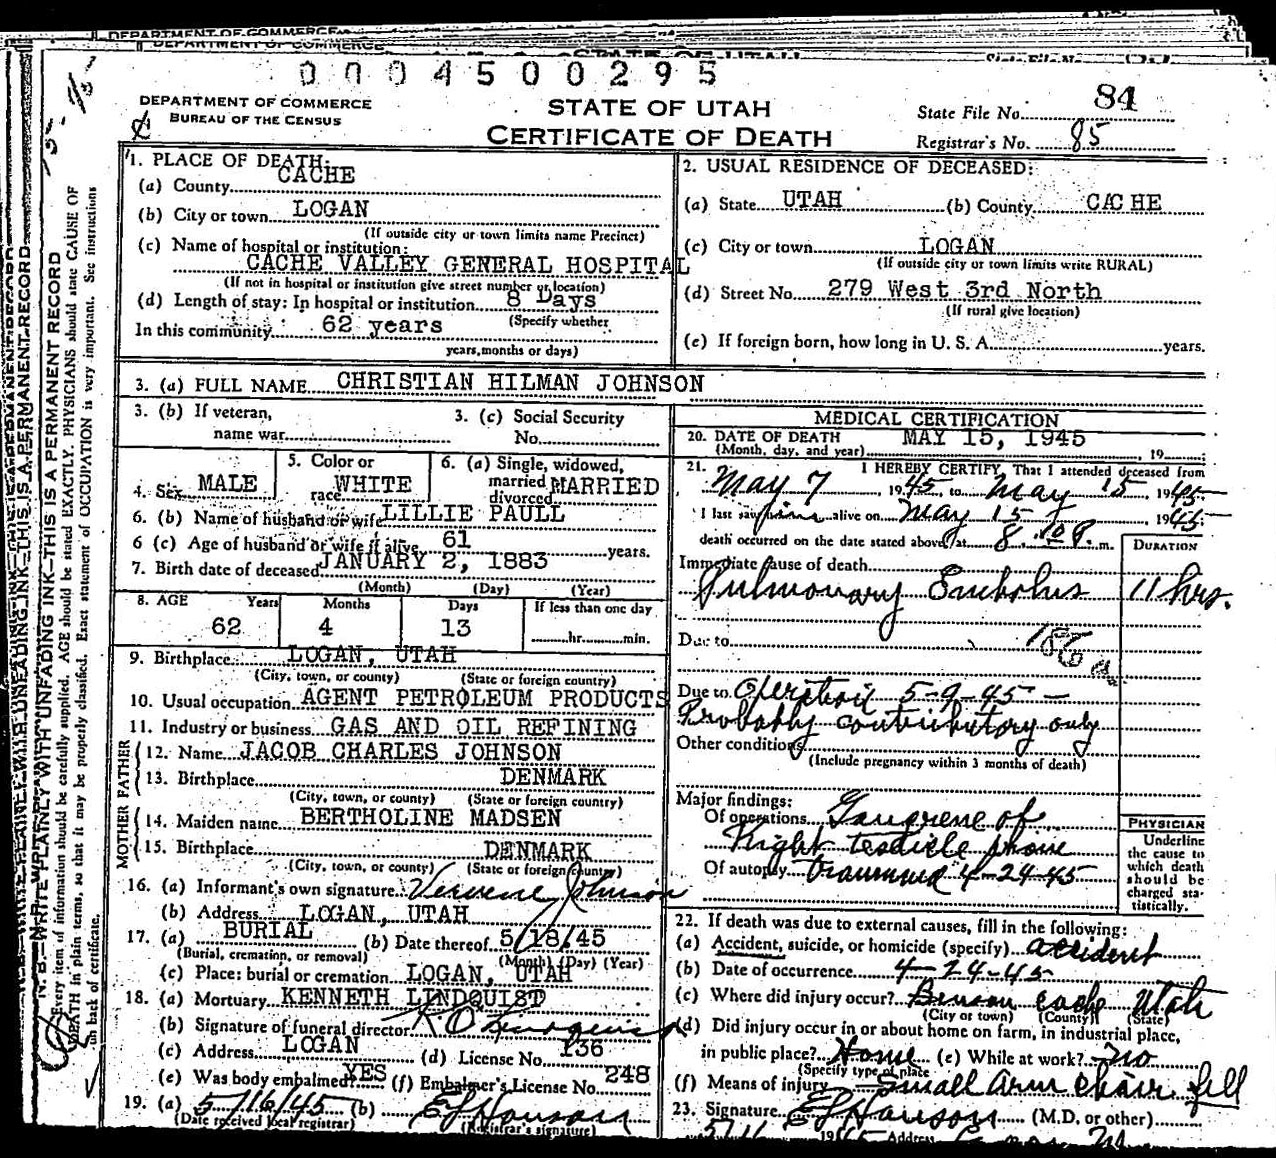 DEPARTMENT OF COMMERCE
DEPARTMENT OF COMMERCE
STATE OF UTAH
0004500295
DEPARTMENT OF COMMERCE
BUREAU OF THE CENSUS
STATE OF UTAH
CERTIFICATE OF DEATH
State File No. 84
Registrar's No. 85
N. B.—WRITE PLAINLY WITH UNFADING INK—THIS IS A PERMANENT RECORD
Every item of information should be carefully supplied. AGE should be stated EXACTLY. PHYSICIANS should state CAUSE OF
DEATH in plain terms, so that it may be properly classified. Exact statement of OCCUPATION is very important. See instructions
on back of certificate.
1. PLACE OF DEATH:
(a) County CACHE
(b) City or town LOGAN
(If outside city or town limits name Precinct)
(c) Name of hospital or institution:
CACHE VALLEY GENERAL HOSPITAL
(If not in hospital or institution give street number or location)
(d) Length of stay: In hospital or institution 8 Days
In this community 62 years (Specify whether
years, months or days)
2. USUAL RESIDENCE OF DECEASED:
(a) State UTAH (b) County CACHE
(c) City or town LOGAN
(If outside city or town limits write RURAL)
(d) Street No. 279 West 3rd North
(If rural give location)
(e) If foreign born, how long in U. S. A. years.
3. (a) FULL NAME CHRISTIAN HILMAN JOHNSON
3. (b) If veteran,
name war
3. (c) Social Security
No.
4. Sex MALE
5. Color or
race WHITE
6. (a) Single, widowed,
married
divorced MARRIED
6. (b) Name of husband or wife LILLIE PAULL
6 (c) Age of husband or wife if alive 61 years.
7. Birth date of deceased JANUARY 2, 1883
(Month) (Day) (Year)
8. AGE Years Months Days If less than one day
62 4 13 hr. min.
9. Birthplace LOGAN, UTAH
(City, town, or county) (State or foreign country)
10. Usual occupation AGENT PETROLEUM PRODUCTS
11. Industry or business GAS AND OIL REFINING
FATHER
12. Name JACOB CHARLES JOHNSON
13. Birthplace DENMARK
(City, town, or county) (State or foreign country)
MOTHER
14. Maiden name BERTHOLINE MADSEN
15. Birthplace DENMARK
(City, town, or county) (State or foreign country)
16. (a) Informant's own signature Johnson
(b) Address LOGAN, UTAH
17. (a) BURIAL (b) Date thereof 5/18/45
(Burial, cremation, or removal) (Month) (Day) (Year)
(c) Place: burial or cremation LOGAN, UTAH
18. (a) Mortuary KENNETH LINDQUIST
(b) Signature of funeral director K O Lindquist
(c) Address LOGAN (d) License No. 136
(e) Was body embalmed? YES (f) Embalmer's License No. 248
19. (a) 5/16/45 (b) EL Hanson
(Date received local registrar) (Registrar's signature)
MEDICAL CERTIFICATION
20. DATE OF DEATH MAY 15, 1945
(Month, day, and year) , 19
21. I HEREBY CERTIFY, That I attended deceased from
May 7, 1945, to May 15 1945
I last saw him alive on May 15, 1945;
death occurred on the date stated above, at 8:10 P. m.
DURATION
Immediate cause of death
Pulmonary Embolus 11 hrs.
Due to
Due to Operation 5-9-45 —
Probably contributory only
Other conditions
(Include pregnancy within 3 months of death)
Major findings:
Of operations Gangrene of
Right testicle
Of autopsy 4-24-45
PHYSICIAN
Underline
the cause to
which death
should be
charged sta-
tistically.
22. If death was due to external causes, fill in the following:
(a) Accident, suicide, or homicide (specify) accident
(b) Date of occurrence 4-24-45
(c) Where did injury occur? Benson Cache Utah
(City or town) (County) (State)
(d) Did injury occur in or about home on farm, in industrial place,
in public place? Home (e) While at work? no
(Specify type of place
(f) Means of injury Small arm chair fell
23. Signature EL Hanson (M.D. or other)
Address